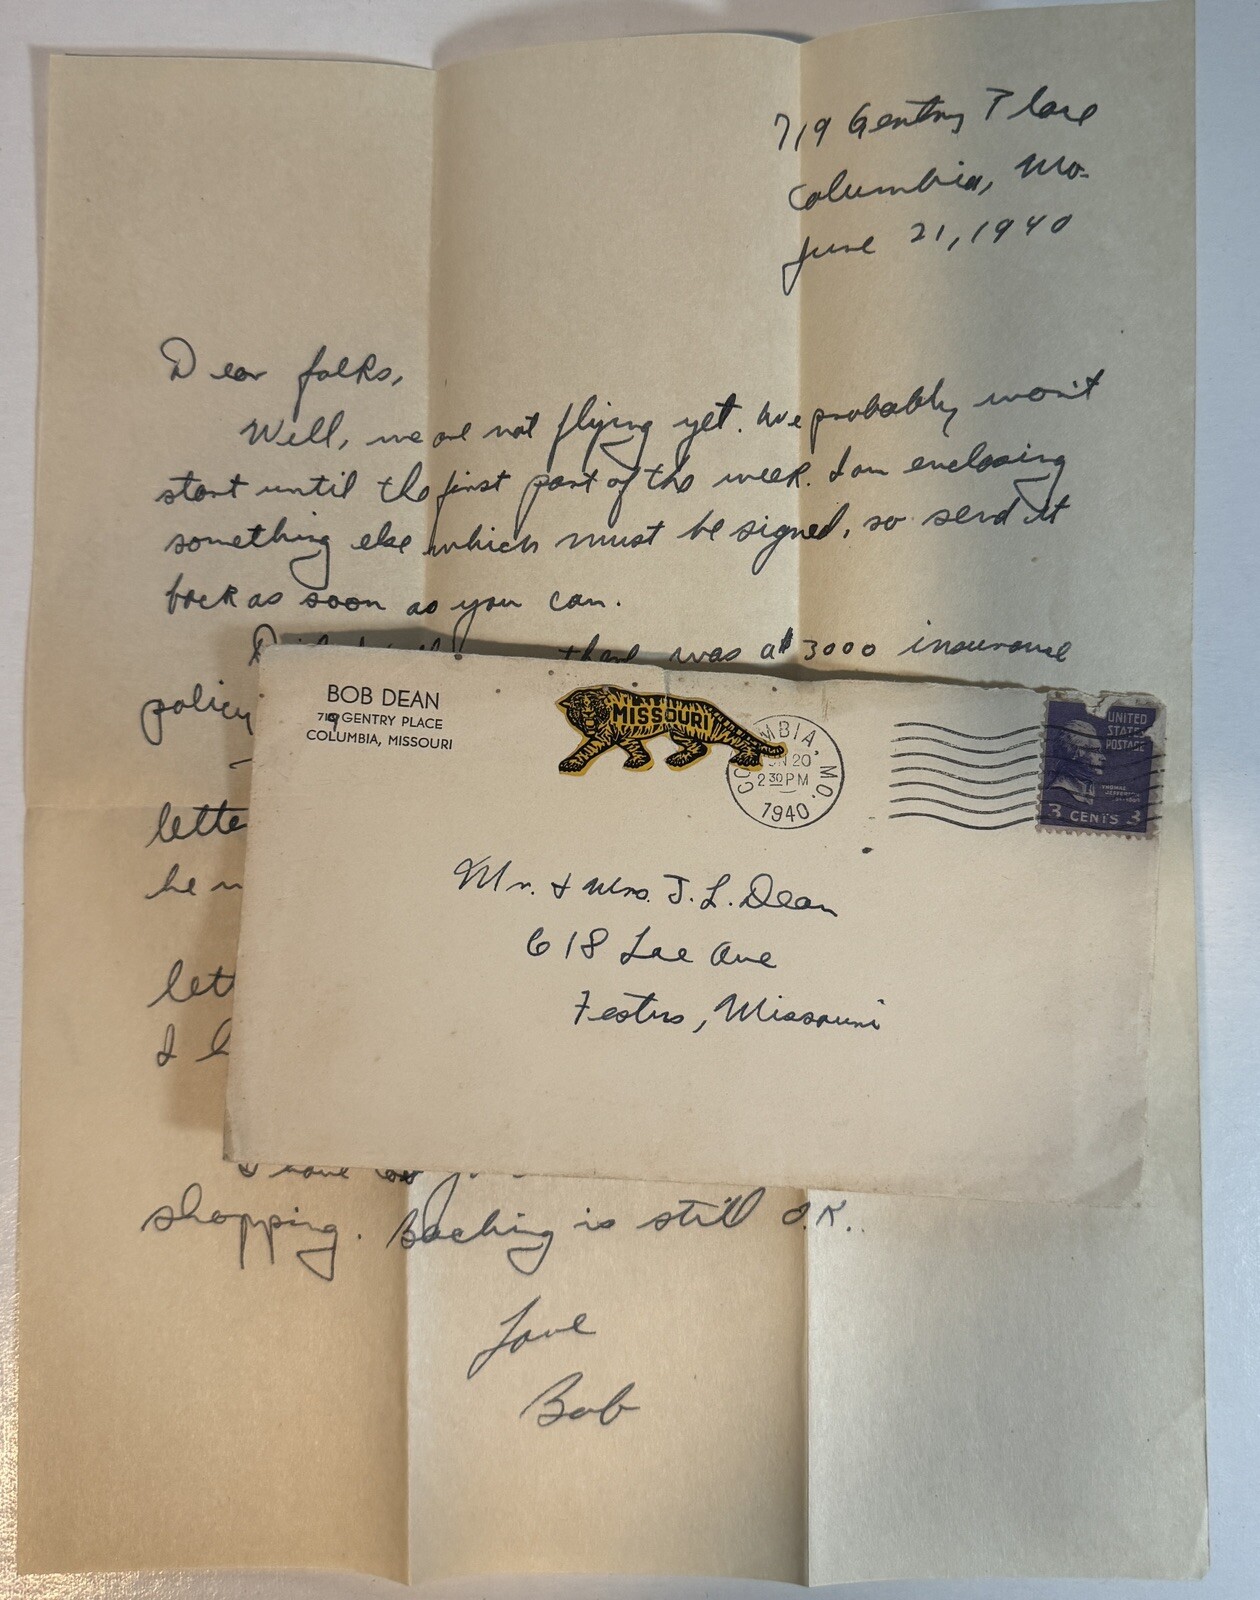 719 Gentry Place
Columbia, Mo.
June 21, 1940
Dear folks,
Well, we are not flying yet. We probably won't
start until the first part of the week. I am enclosing
something else which must be signed, so send it
back as soon as you can.
there was a $3000 insurance
policy
BOB DEAN
719 GENTRY PLACE
COLUMBIA, MISSOURI
MISSOURI
COLUMBIA, MO.
JUN 20
2 30 PM
1940
UNITED
STATES
POSTAGE
THOMAS
JEFFERSON
3 CENTS 3
Mr. & Mrs. J. L. Dean
618 Lee Ave
Festus, Missouri
lette
he
lett
I
I have
shopping. Baching is still O.K.
Love
Bob